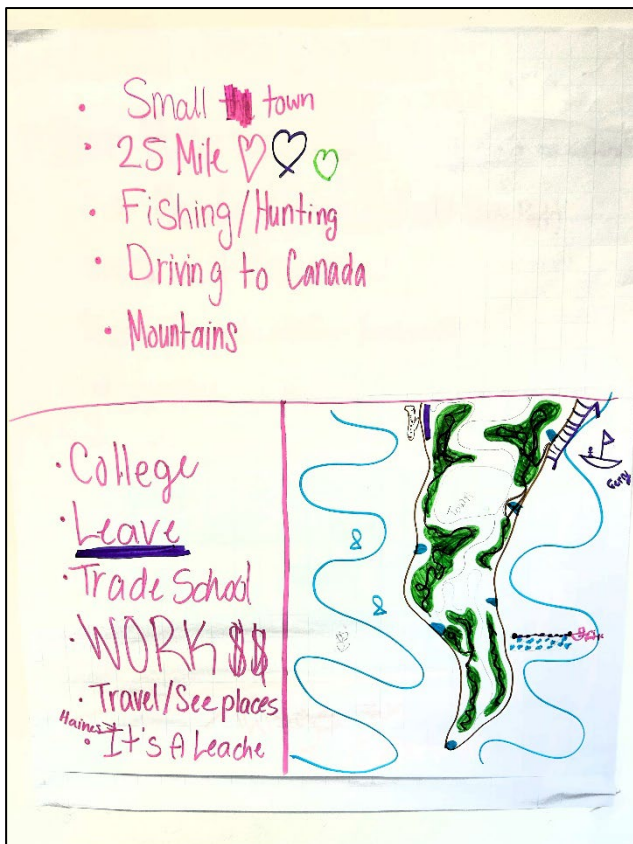 • Small town
• 25 Mile ♡ ♡ ♡
• Fishing/Hunting
• Driving to Canada
• Mountains
• College
• Leave
• Trade School
• WORK $$
• Travel/See places
Haines
• It's A Leache
Town